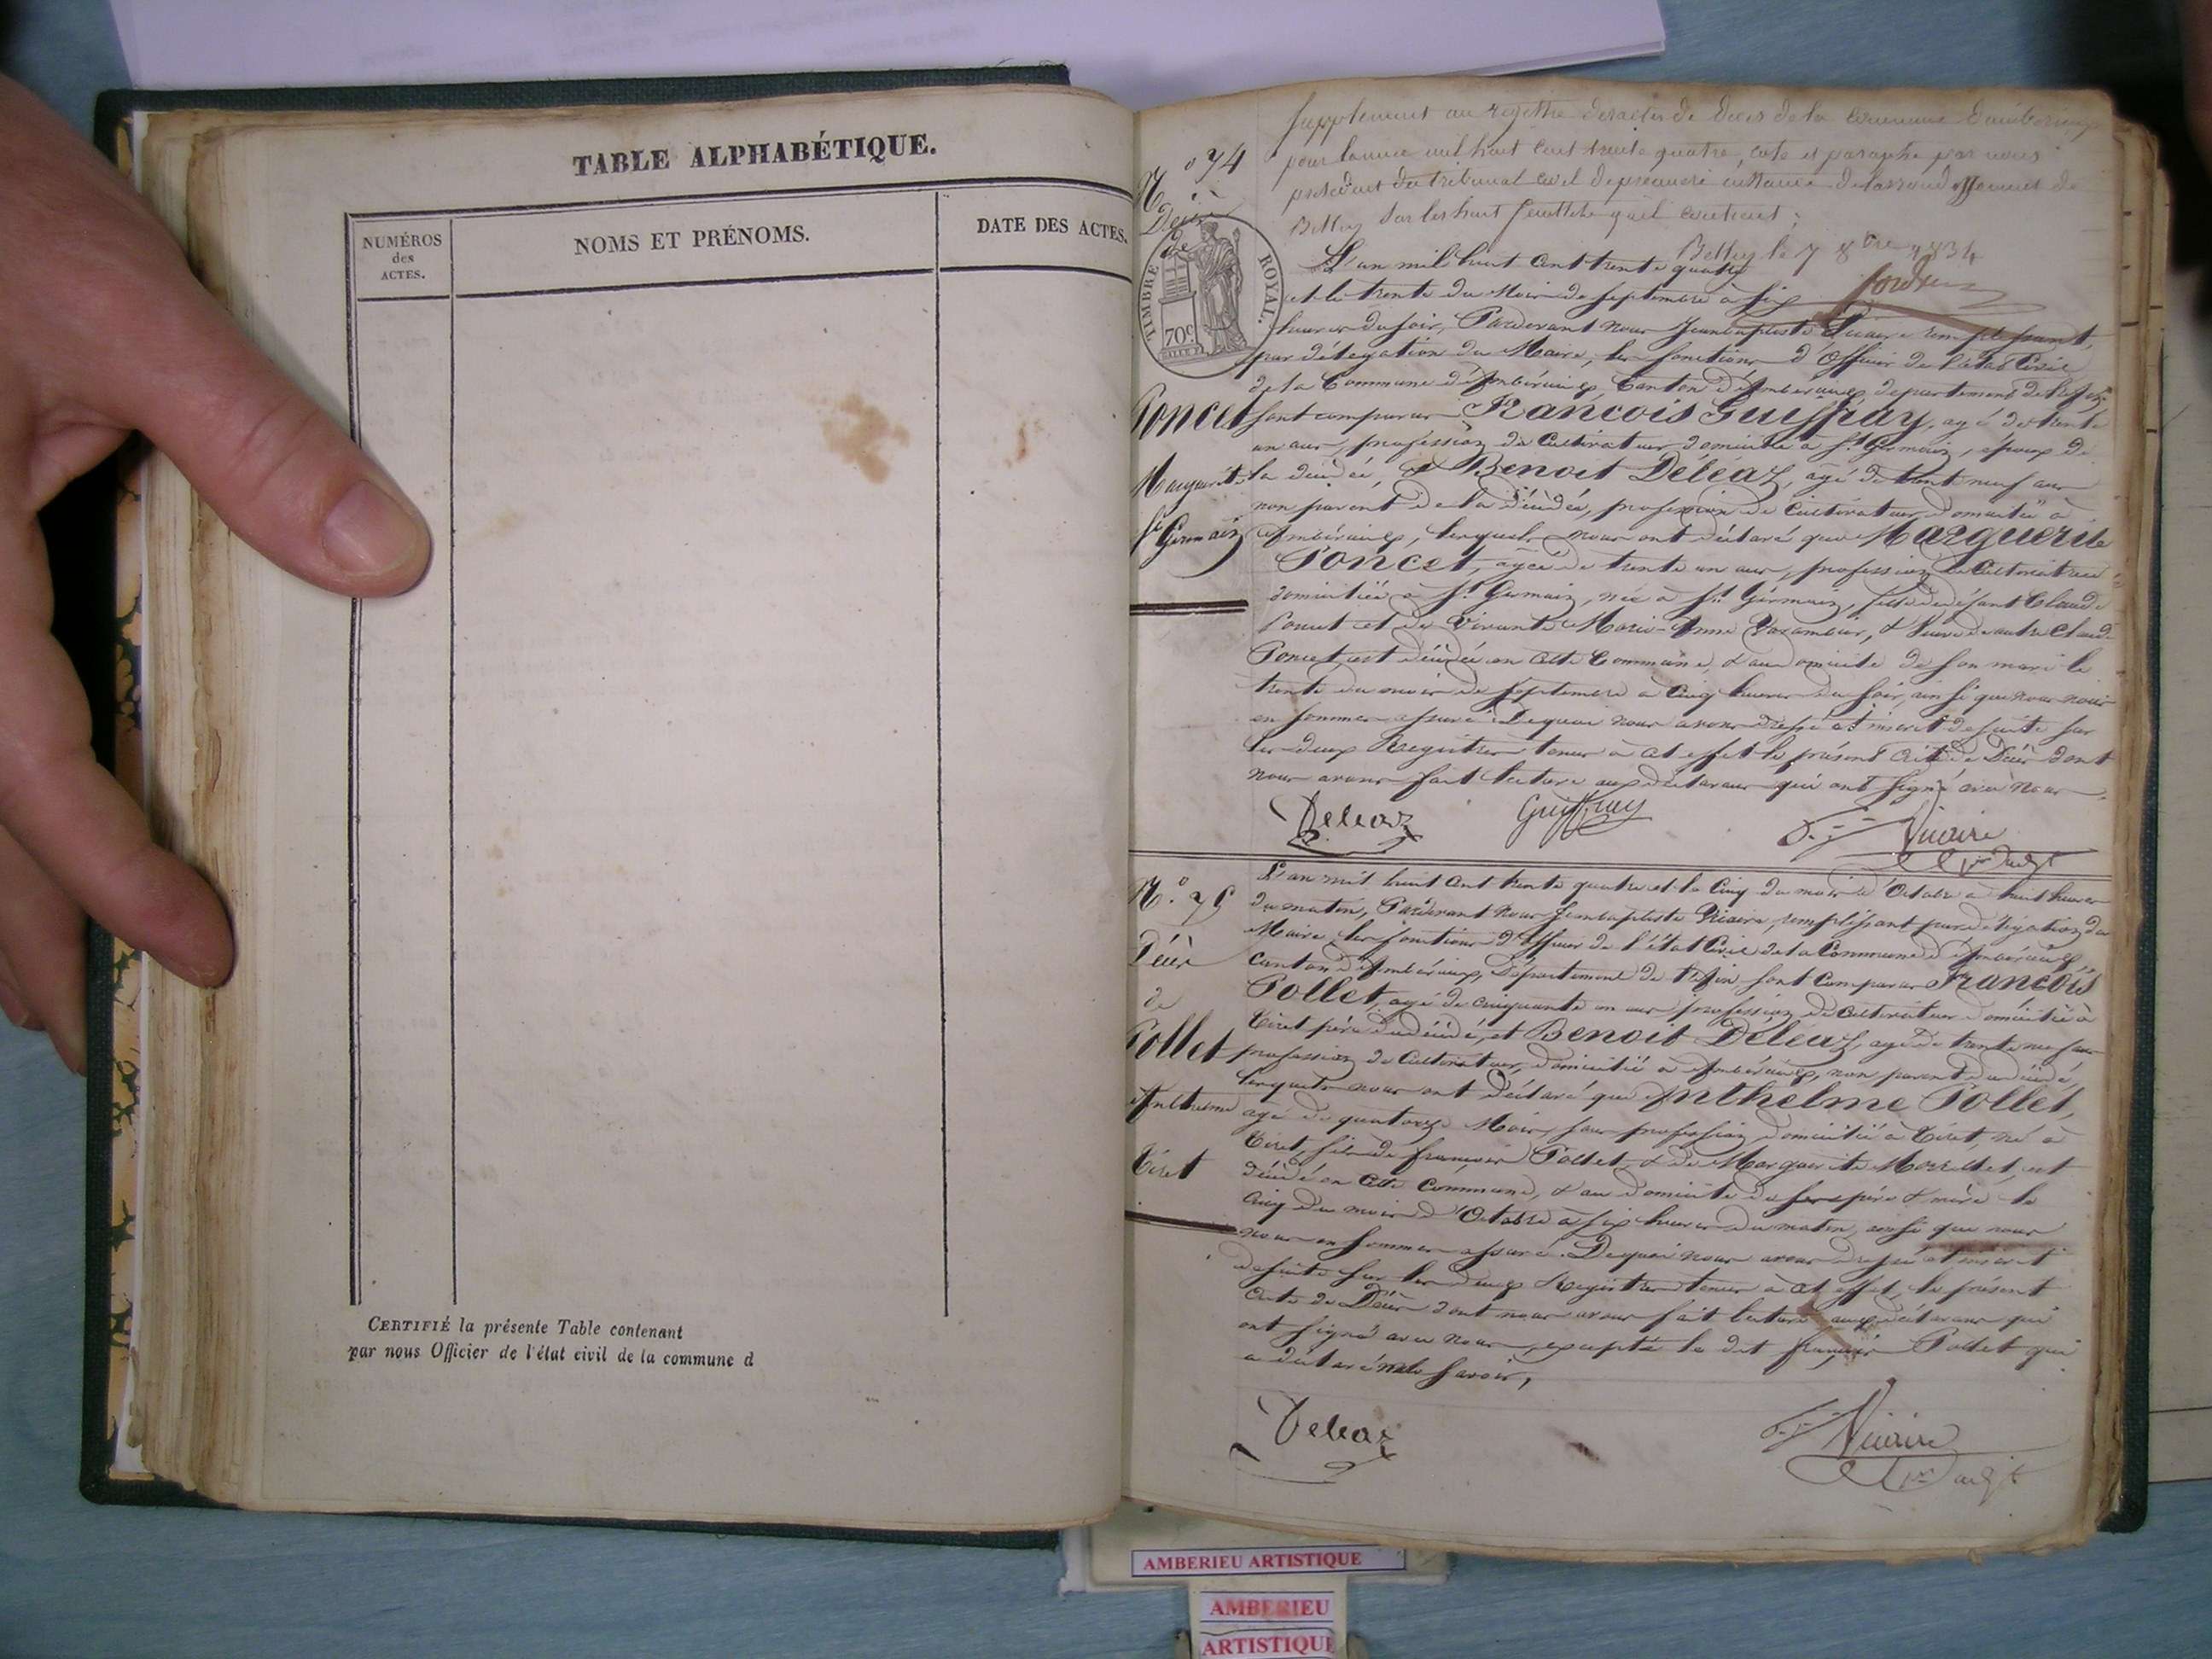 TABLE ALPHABÉTIQUE.
NUMÉROS
des
ACTES.
NOMS ET PRÉNOMS.
DATE DES ACTES.
CERTIFIÉ la présente Table contenant
par nous Officier de l'état civil de la commune d
Supplément au registre des actes de décès de la commune d'ambérieux
pour l'année mil huit cent trente quatre, coté et paraphé par nous
président du tribunal civil de première instance de l'arrondissement de
Belley sur les huit feuillets qu'il contient;
Belley le 7 8bre 1834
N.º 74
Décès
de
TIMBRE ROYAL.
70c
Poncet
Marguerite
St Germain
L'an mil huit cent trente quatre
et le trente du mois de Septembre à six
heures du soir, Pardevant nous Jeanbaptiste Vicaire remplissant,
par délégation du Maire, les fonctions d'Officier de l'état Civil
de la Commune d'Ambérieux, Canton d'Ambérieux, département de l'Ain,
sont comparus François Guiffray, agé de trente
un ans, profession de Cultivateur domicilié à St Germain, époux de
la décédée, et Benoit Déléaz, agé de trent neuf ans
non parent de la décédée, profession de Cultivateur, domicilié à
Ambérieux, lesquels nous ont déclaré que Marguerite
Poncet, agée de trente un ans, profession de Cultivatrice
domiciliée à St Germain, née à St Germain, fille de défunt Claude
Poncet et de vivante Marie-Anne & veuve de autre Claude
Poncet, est décédée en cette Commune, & au domicile de son mari le
trente du mois de Septembre à cinq heures du soir, ainsi que nous nous
en sommes assuré. De quoi nous avons dressé et inscrit de suite sur
les deux Registres tenus à cet effet le présent acte de Décès dont
nous avons fait lecture aux déclarans qui ont signé avec nous
Deleaz Guiffray Vicaire
N.º 75
Décès
de
Pollet
Anthelme
Tiret
L'an mil huit cent trente quatre et le cinq du mois d'Octobre à huit heures
du matin, Pardevant nous Jeanbaptiste Vicaire, remplissant par délégation du
Maire les fonctions d'officier de l'état Civil de la Commune d'Ambérieux,
Canton d'Ambérieux, Département de l'Ain, sont comparus François
Pollet, agé de cinquante un ans profession de Cultivateur domicilié à
Tiret père du décédé, et Benoit Déléaz, agé de trente neuf ans
profession de Cultivateur, domicilié à Ambérieux, non parent du décédé,
lesquels nous ont déclaré que Anthelme Pollet,
agé de quatorze Mois sans profession domicilié à Tiret, né à
Tiret, fils de françois Pollet & de Marguerite Morellet, est
décédé en cette Commune, & au domicile de ses père & mère le
cinq du mois d'Octobre à six heures du matin, ainsi que nous
nous en sommes assuré. De quoi nous avons dressé et inscrit
de suite sur les deux Registres tenus à cet effet, le présent
acte de Décès dont nous avons fait lecture aux déclarans qui
ont signé avec nous, excepté le dit françois Pollet qui
a déclaré ne le savoir,
Deleaz Vicaire
AMBERIEU ARTISTIQUE
AMBERIEU
ARTISTIQUE